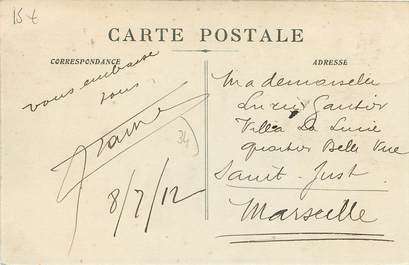 15 €
CARTE POSTALE
CORRESPONDANCE
ADRESSE
vous embrasse
tous
8/7/12
34
Mademoiselle
Gautier
Villa La Lucie
quartier Belle Vue
Saint-Just
Marseille